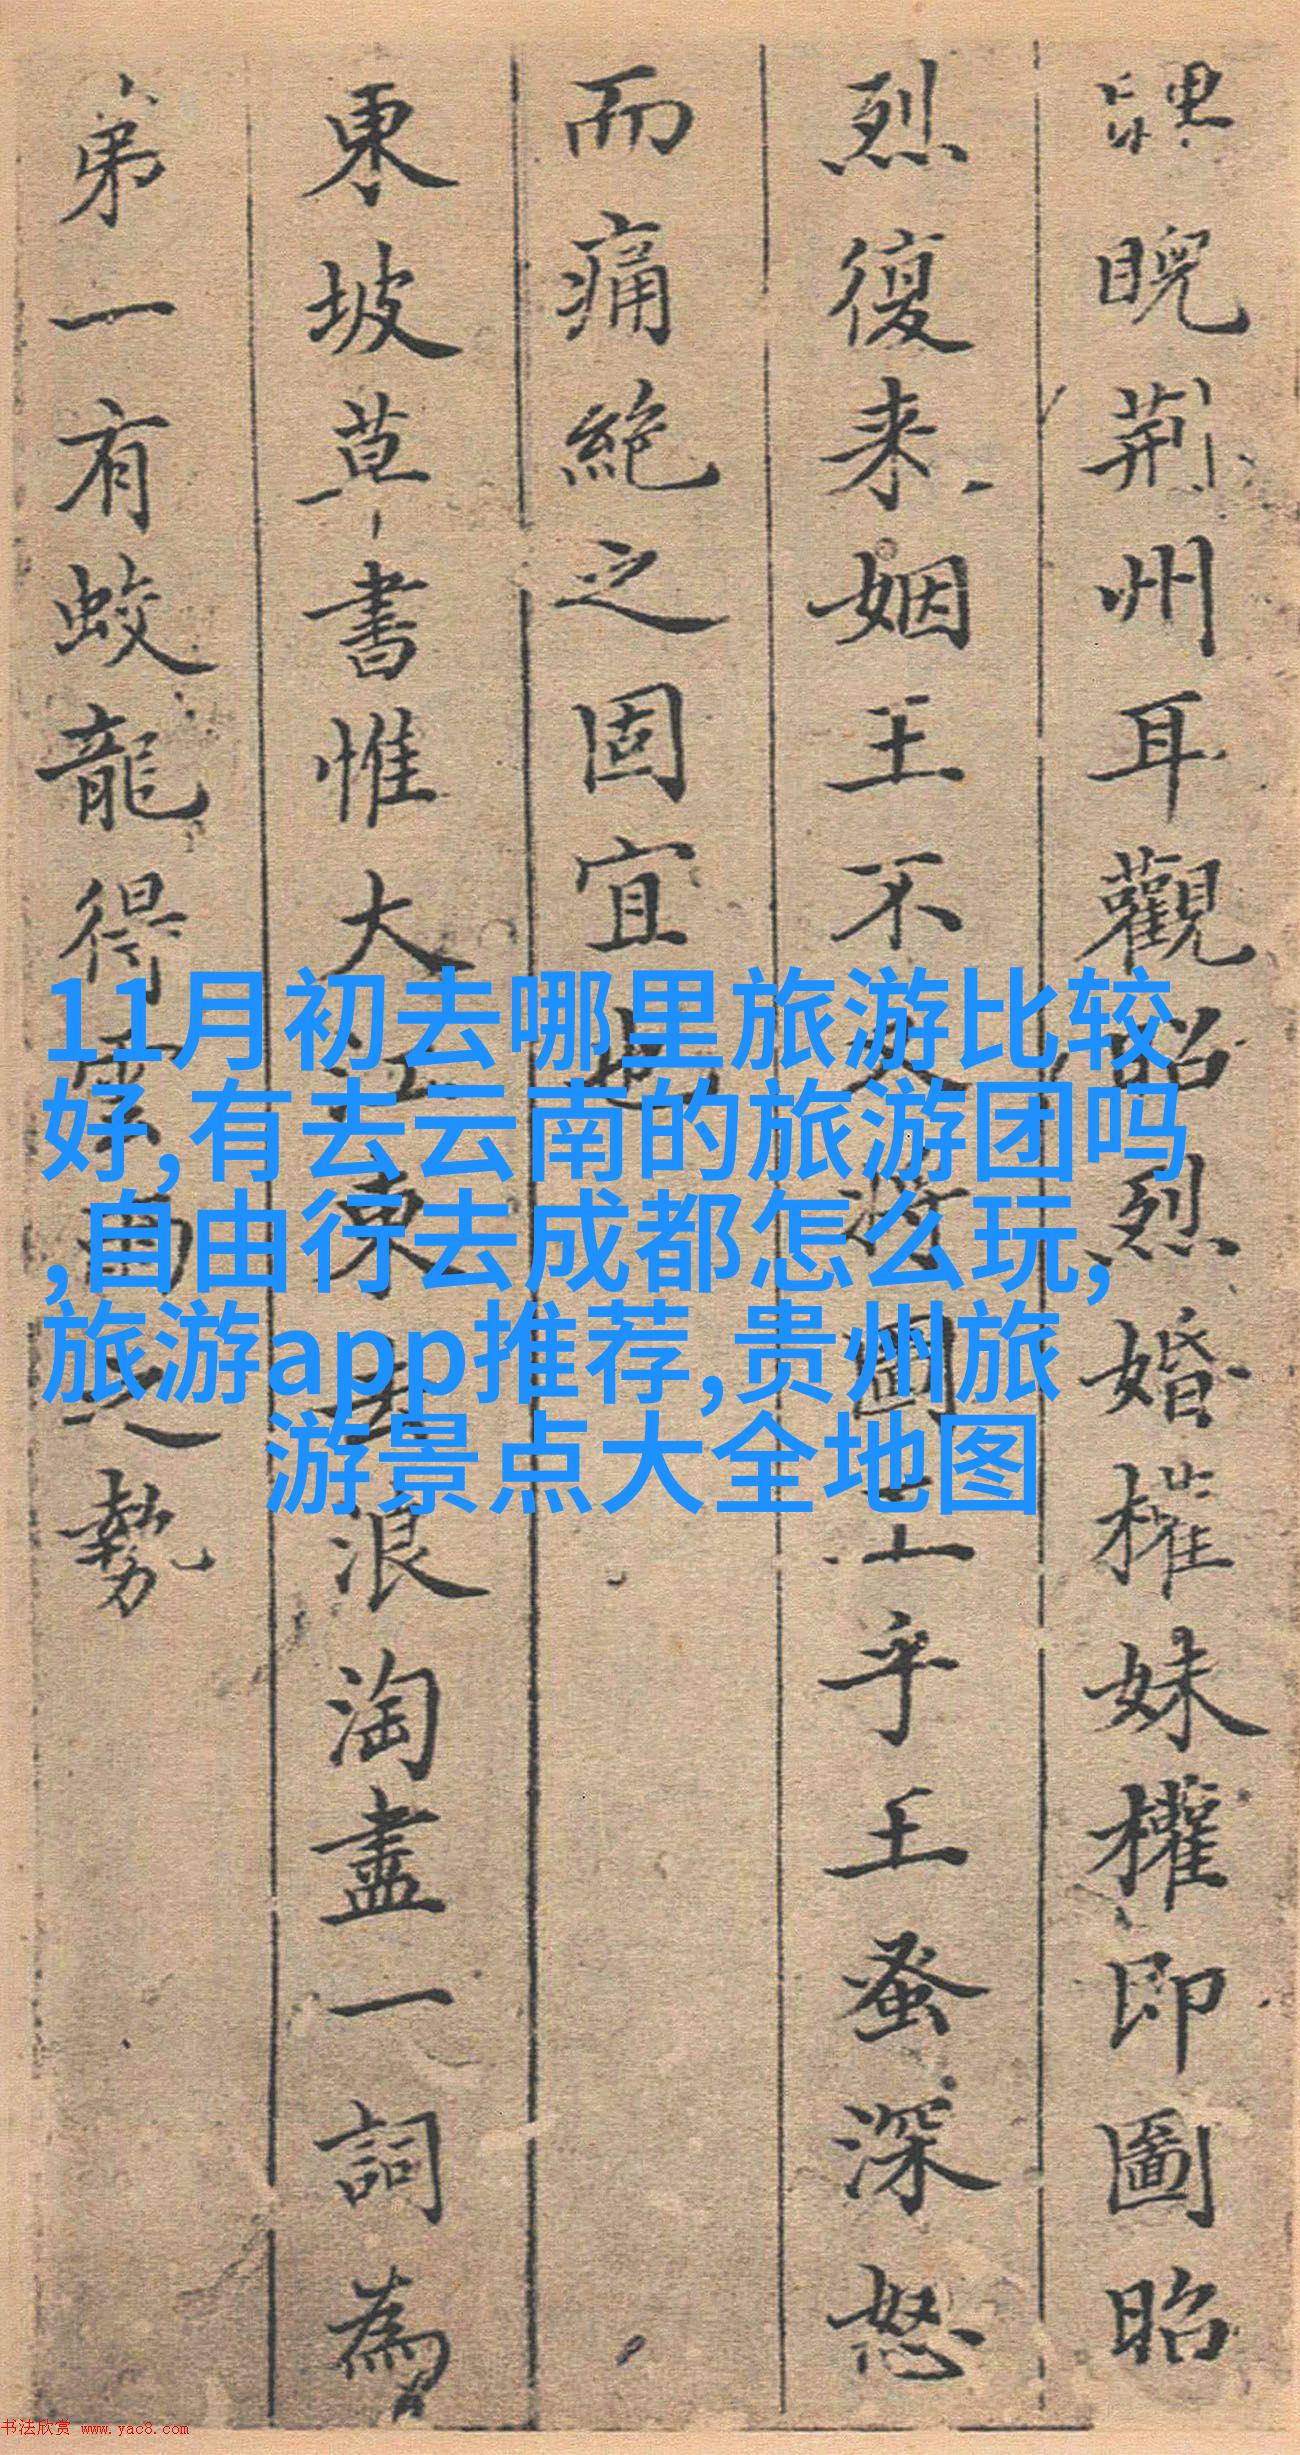 睥睨荊州耳觀昭烈婚權妹權即圖昭
烈復来姻王不
乎王蚤深怒
而痛絶之固宜也
東坡草書惟大江東去浪淘盡一詞為
弟一有蛟龍得雲雨之勢
11月初去哪里旅游比较
好,有去云南的旅游团吗
,自由行去成都怎么玩,
旅游app推荐,贵州旅
游景点大全地图
书法欣赏 www.yac8.com